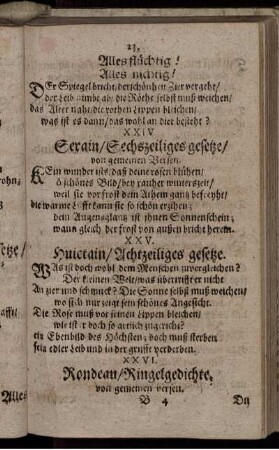 23.
Alles flüchtig!
Alles nichtig!
DEr Spiegel bricht/ der schönheit Zier vergeht/
der Leib nimbt ab/ die Röthe selbst muß weichen/
das Alter naht/ die rothen Lippen bleichen/
was ist es dann/ das wohl an dier besteht?
XXIV
Serain/ Sechszeiliges gesetze/
von gemeinen Versen.
KEin wunder ists/ daß deine rosen blühen/
ö schönes Bild/ bey rauher winterszeit/
weil sie vor frost dein Athem gantz befreyht/
die warme Lufft kann sie so schön erzihen;
dein Augenglantz ist ihnen Sonnenschein;
wann gleich der frost von außen bricht herein.
XXV.
Huictain/ Achtzeiliges gesetze.
WAs ist doch wohl dem Menschen zuvergleichen?
Der kleinen Welt/ was übertrifft er nicht
An zier und schmuck? Die Sonne selbst muß weichen/
wo sich nur zeigt sein schönes Angesicht.
Die Rose muß vor seinen Lippen bleichen/
wie ist er doch so artlich zugericht?
ein Ebenbild des Höchsten; doch muß sterben
sein edler Leib und in der grufft verderben.
XXVI.
Rondeau/ Ringelgedichte.
von gemeinen versen.
B 4